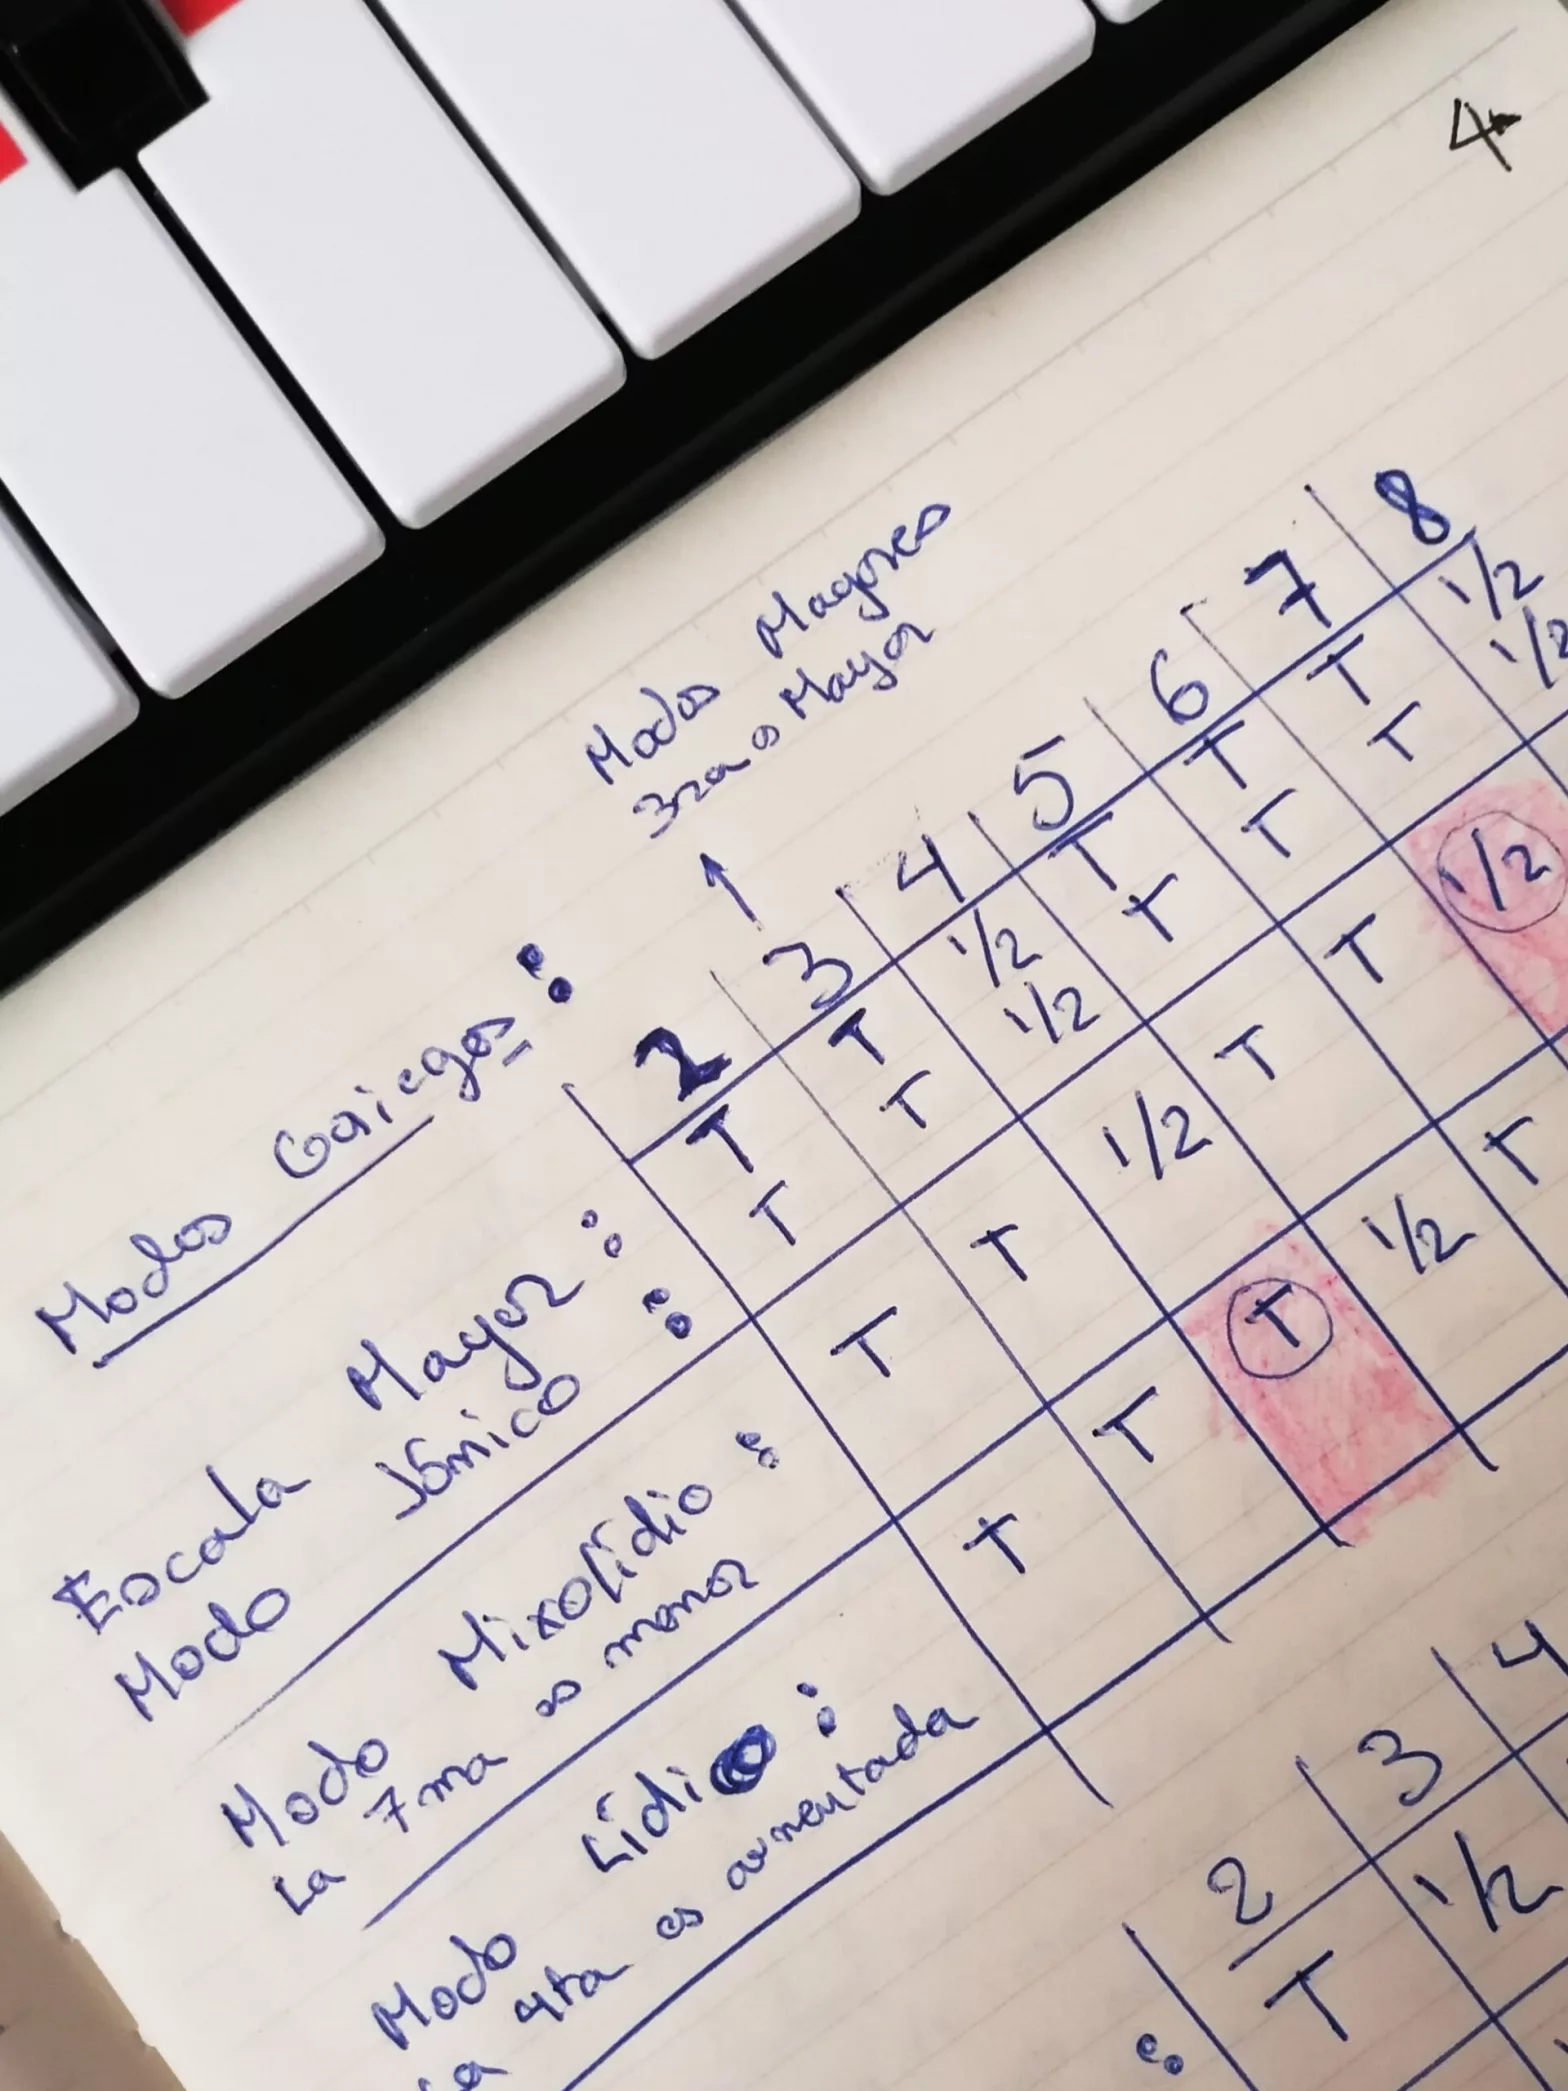 4
Modos Mayores
3ra es Mayor
Modos Griegos:
2 3 4 5 6 7 8
Escala Mayor: T T 1/2 T T T 1/2
Modo Jónico: T T 1/2 T T T 1/2
Modo Mixolídio: T T 1/2 T T 1/2
La 7ma es menor
Modo Lídio: T T T 1/2 T
La 4ta es aumentada
2 3 4
: T 1/2